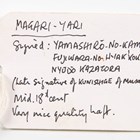 MAGARI-YARI
Signed: YAMASHIRO-NO-KAMI
FUJIWARA-NO-HYAK
NYUDO KAZATORA
(late signature of KUNISHIGE of
Mid. 18th cent
Very nice quality haft.